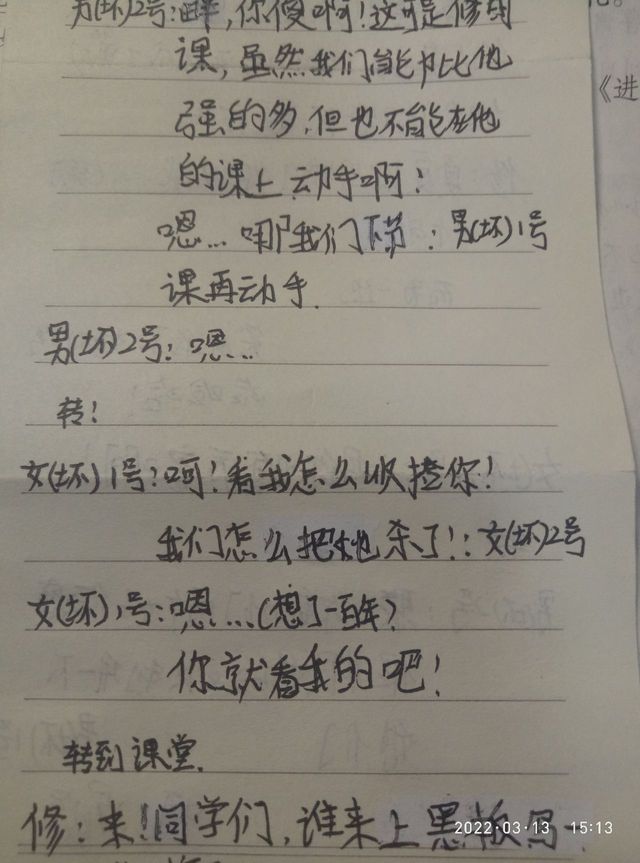 男(坏)2号:你傻啊!这可是修的
课,虽然我们能力比他
强的多,但也不能在他
的课上动手啊!
嗯...哪我们下节:男(坏)1号
课再动手.
男(坏)2号:嗯...
转!
女(坏)1号:呵!看我怎么收揸你!
我们怎么把她杀了!:女(坏)2号
女(坏)1号:嗯...(想了一百年?
你就看我的吧!
转到课堂.
修:来!同学们,谁来上黑板写
《进
2022·03·13 15:13